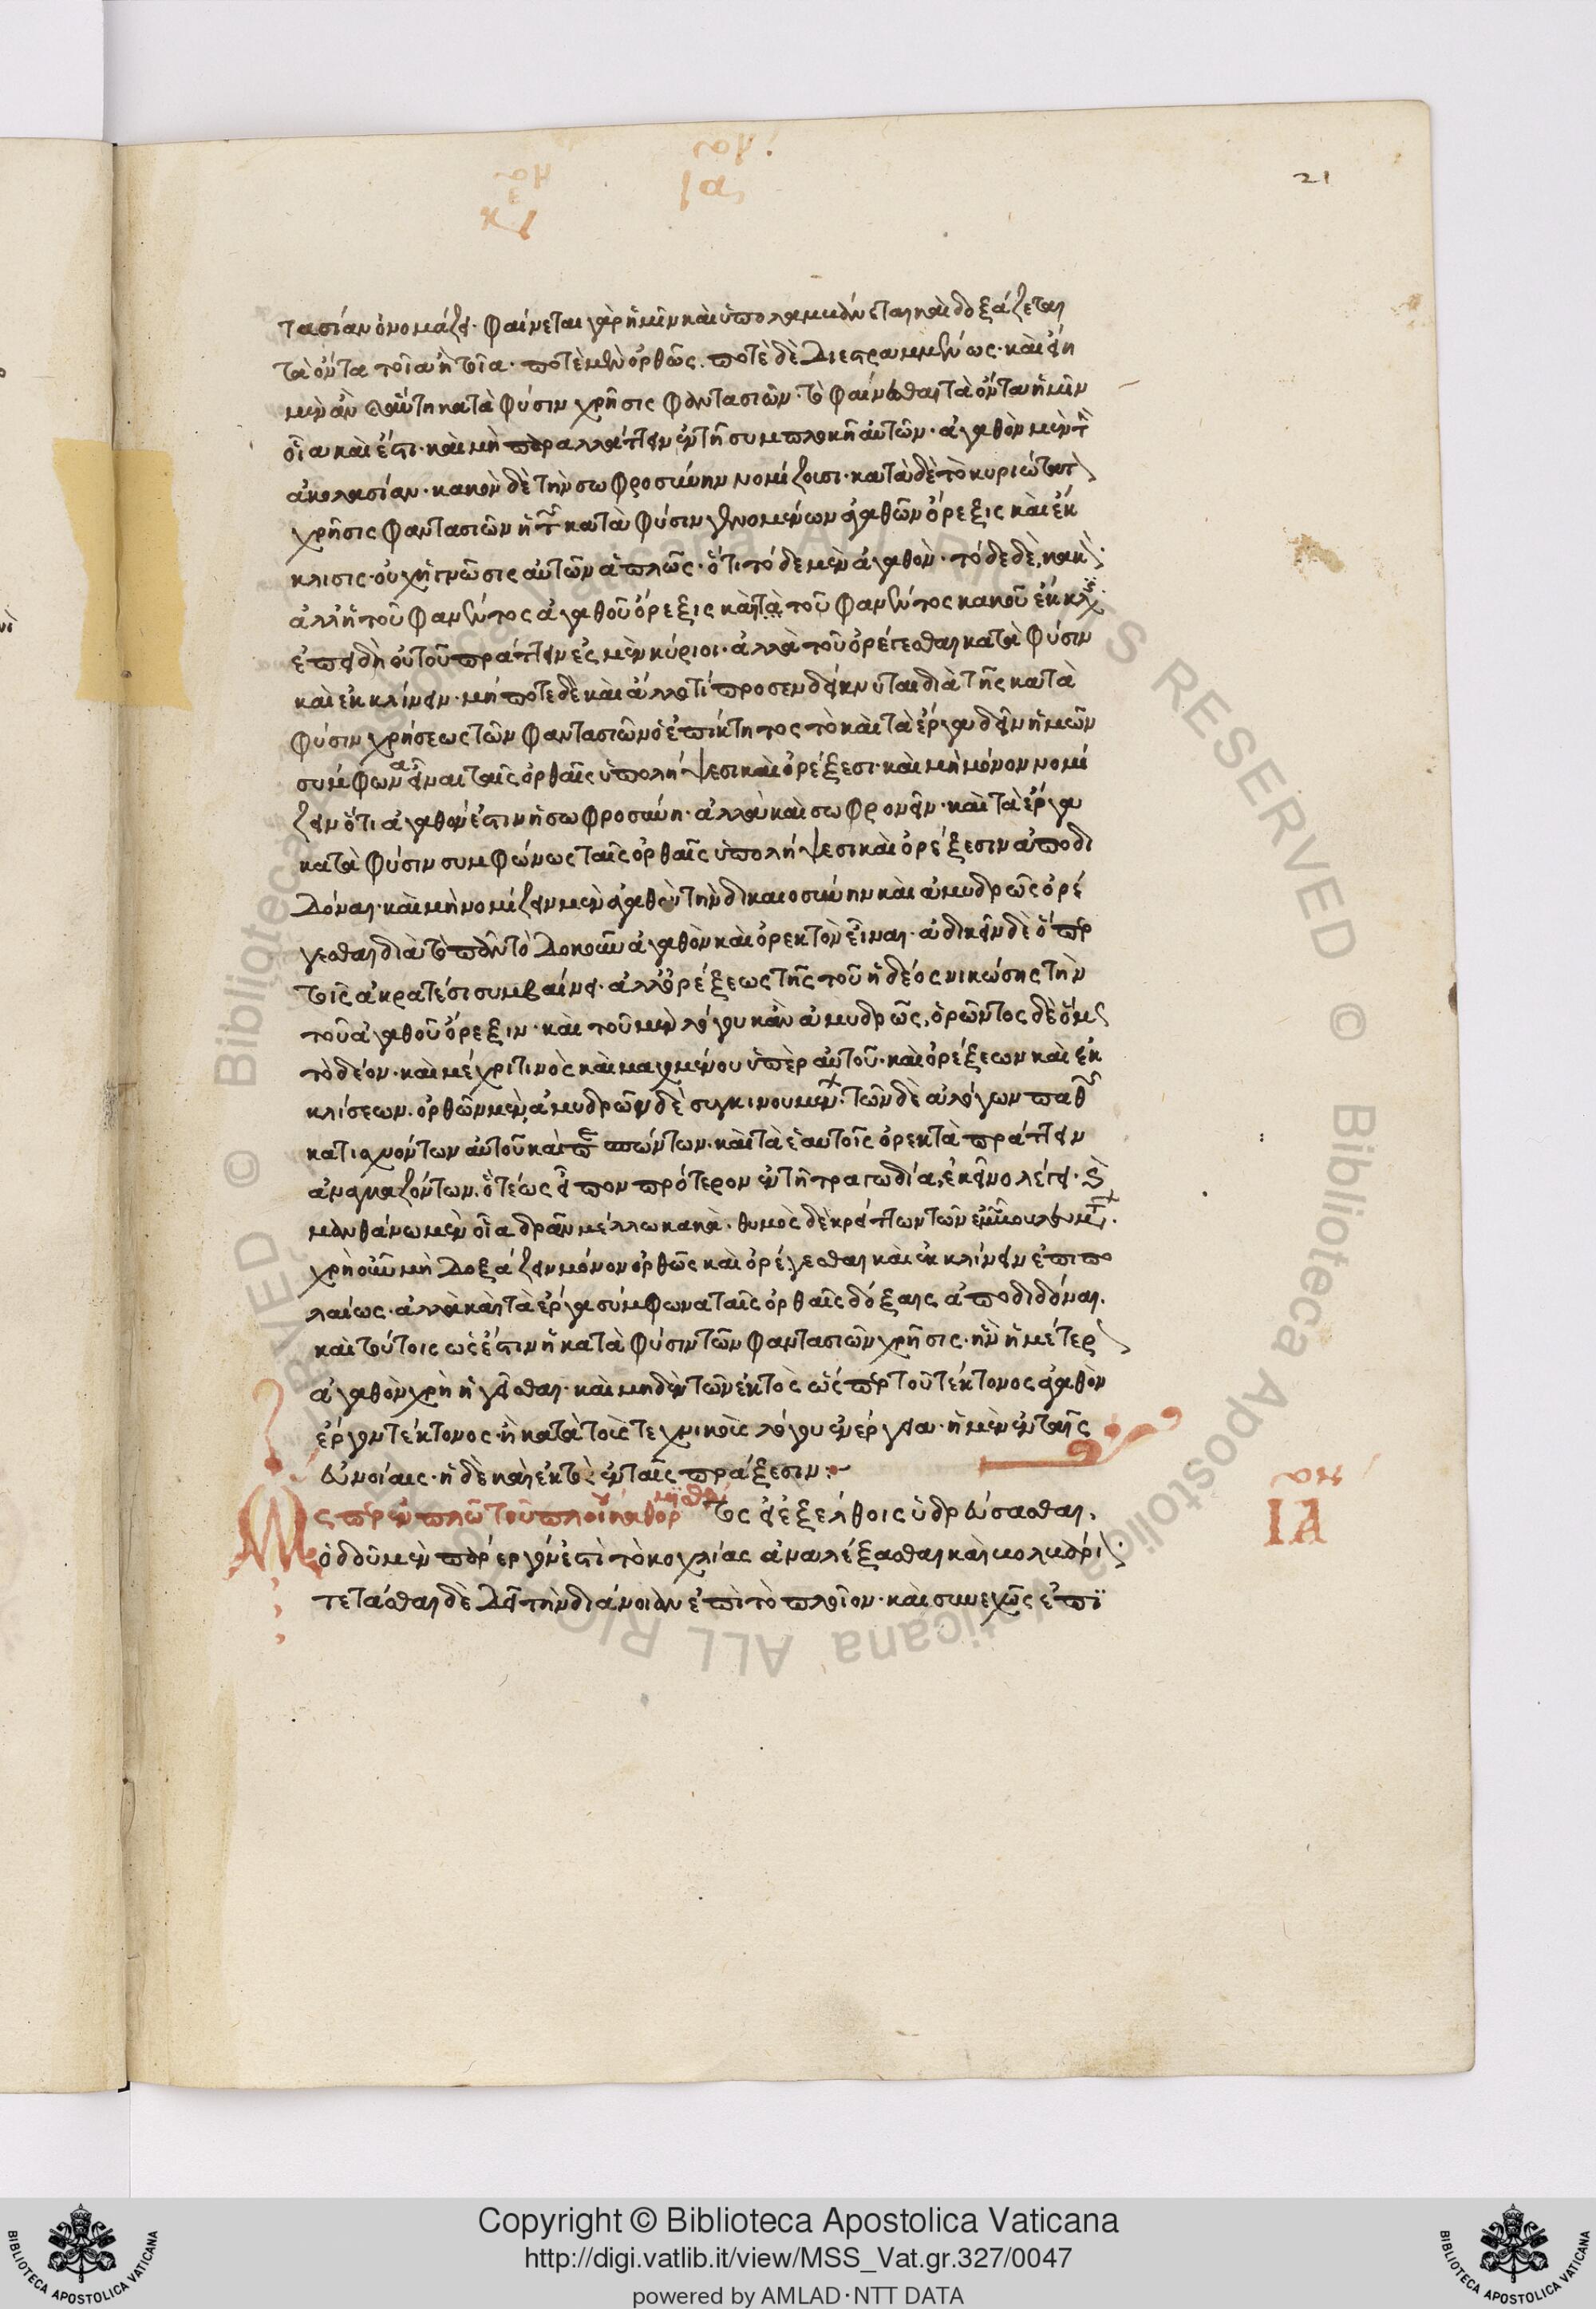 21
τασίαν ὀνομάζει· φαίνεται γὰρ ἡμῖν καὶ ὑπολαμβάνεται καὶ δοξάζεται
τὰ ὄντα τοῖα ἢ τοῖα· ποτὲ μὲν ὀρθῶς· ποτὲ δὲ διεστραμμένως· καὶ εἴη
μὲν ἂν αὕτη κατὰ φύσιν χρῆσις φαντασιῶν· τὸ φαίνεσθαι τὰ ὄντα ἡμῖν
οἷα καὶ ἔστι· καὶ μὴ παραλλάττειν ἐν τῇ συμπλοκῇ αὐτῶν· ἀγαθὸν μὲν τὴν
ἀκολασίαν· κακὸν δὲ τὴν σωφροσύνην νομίζουσι· κατὰ δὲ τὸ κυριώτατον
χρῆσις φαντασιῶν ἡ τῶν κατὰ φύσιν γινομένων ἀγαθῶν ὄρεξις καὶ ἔκ
κλισις· οὐχ ἡ γνῶσις αὐτῶν ἁπλῶς· ὅτι τόδε μὲν ἀγαθὸν· τόδε δὲ κακόν·
ἀλλ' ἡ τοῦ φανέντος ἀγαθοῦ ὄρεξις καὶ τὰ τοῦ φανέντος κακοῦ ἔκκλισις
ἐπειδὴ οὐ τοῦ πράττειν ἐσμὲν κύριοι· ἀλλὰ τοῦ ὀρέγεσθαι κατὰ φύσιν
καὶ ἐκκλίνειν· μήποτε δὲ καὶ ἄλλό τι προσενδείκνυται διὰ τῆς κατὰ
φύσιν χρήσεως τῶν φαντασιῶν ὁ ἐπίκτητος τὸ καὶ τὰ ἔργα δεῖν ἡμῶν
σύμφωνα εἶναι ταῖς ὀρθαῖς ὑπολήψεσι καὶ ὀρέξεσι· καὶ μὴ μόνον νομί
ζειν ὅτι ἀγαθόν ἐστιν ἡ σωφροσύνη· ἀλλὰ καὶ σωφρονεῖν· καὶ τὰ ἔργα
κατὰ φύσιν συμφώνως ταῖς ὀρθαῖς ὑπολήψεσι καὶ ὀρέξεσιν ἀποδι
δόναι· καὶ μὴ νομίζειν μὲν ἀγαθὸν τὴν δικαιοσύνην καὶ ἀμυδρῶς ὀρέ
γεσθαι διὰ τὸ πᾶν τὸ δοκοῦν ἀγαθὸν καὶ ὀρεκτὸν εἶναι· ἀδικεῖν δὲ ὅπερ
τοῖς ἀκρατέσι συμβαίνει· ἀλλ' ὀρέξεως τῆς τοῦ ἡδέος νικώσης τὴν
τοῦ ἀγαθοῦ ὄρεξιν· καὶ τοῦ μὲν λόγου κἂν ἀμυδρῶς, ὁρῶντος δὲ ὅμως
τὸ δέον· καὶ μέχρι τινὸς καὶ μαχομένου ὑπὲρ αὐτοῦ· καὶ ὀρέξεων καὶ ἐκ
κλίσεων· ὀρθῶν μὲν, ἀμυδρῶν δὲ συγκινουμένων· τῶν δὲ ἀλόγων παθῶν
κατισχυόντων αὐτοῦ καὶ περισπώντων· καὶ τὰ ἑαυτοῖς ὀρεκτὰ πράττειν
ἀναγκαζόντων· ὅτε ὡς εἶπον πρότερον ἐν τῇ τραγωδία, ἐκεῖνο λέγει· καὶ
μανθάνω μὲν οἷα δρᾶν μέλλω κακὰ· θυμὸς δὲ κρείττων τῶν ἐμῶν βουλευμάτων·
χρὴ οὖν μὴ δοξάζειν μόνον ὀρθῶς καὶ ὀρέγεσθαι καὶ ἐκκλίνειν ἐπιπο
λαίως· ἀλλὰ καὶ τὰ ἔργα σύμφωνα ταῖς ὀρθαῖς δόξαις ἀποδιδόναι.
καὶ τούτοις ὡς ἔστιν ἡ κατὰ φύσιν τῶν φαντασιῶν χρῆσις· ἣν ἡμέτερον
ἀγαθὸν χρὴ ἡγεῖσθαι· καὶ μηδὲν τῶν ἐκτὸς ὥσπερ τοῦ τέκτονος ἀγαθὸν
ἔργον τέκτονος· ἡ κατὰ τοὺς τεχνικοὺς λόγους ἐνέργεια· ἡ μὲν ἐν ταῖς
ἐννοίαις· ἡ δὲ καὶ ἐκτὸς ἐν ταῖς πράξεσιν:
ὥσπερ ἐν πλῶ τοῦ πλοίου καθορμισθέντος εἰ ἐξέλθοις ὑδρεύσασθαι,
ὁδοῦ μὲν πάρεργόν ἐστὶ τὸ κοχλίας ἀναλέξασθαι καὶ βολβάρια·
τετάσθαι δὲ δεῖ τὴν διάνοιαν ἐπὶ τὸ πλοῖον· καὶ συνεχῶς ἐπι
ΙΑ
Copyright © Biblioteca Apostolica Vaticana
http://digi.vatlib.it/view/MSS_Vat.gr.327/0047
powered by AMLAD·NTT DATA